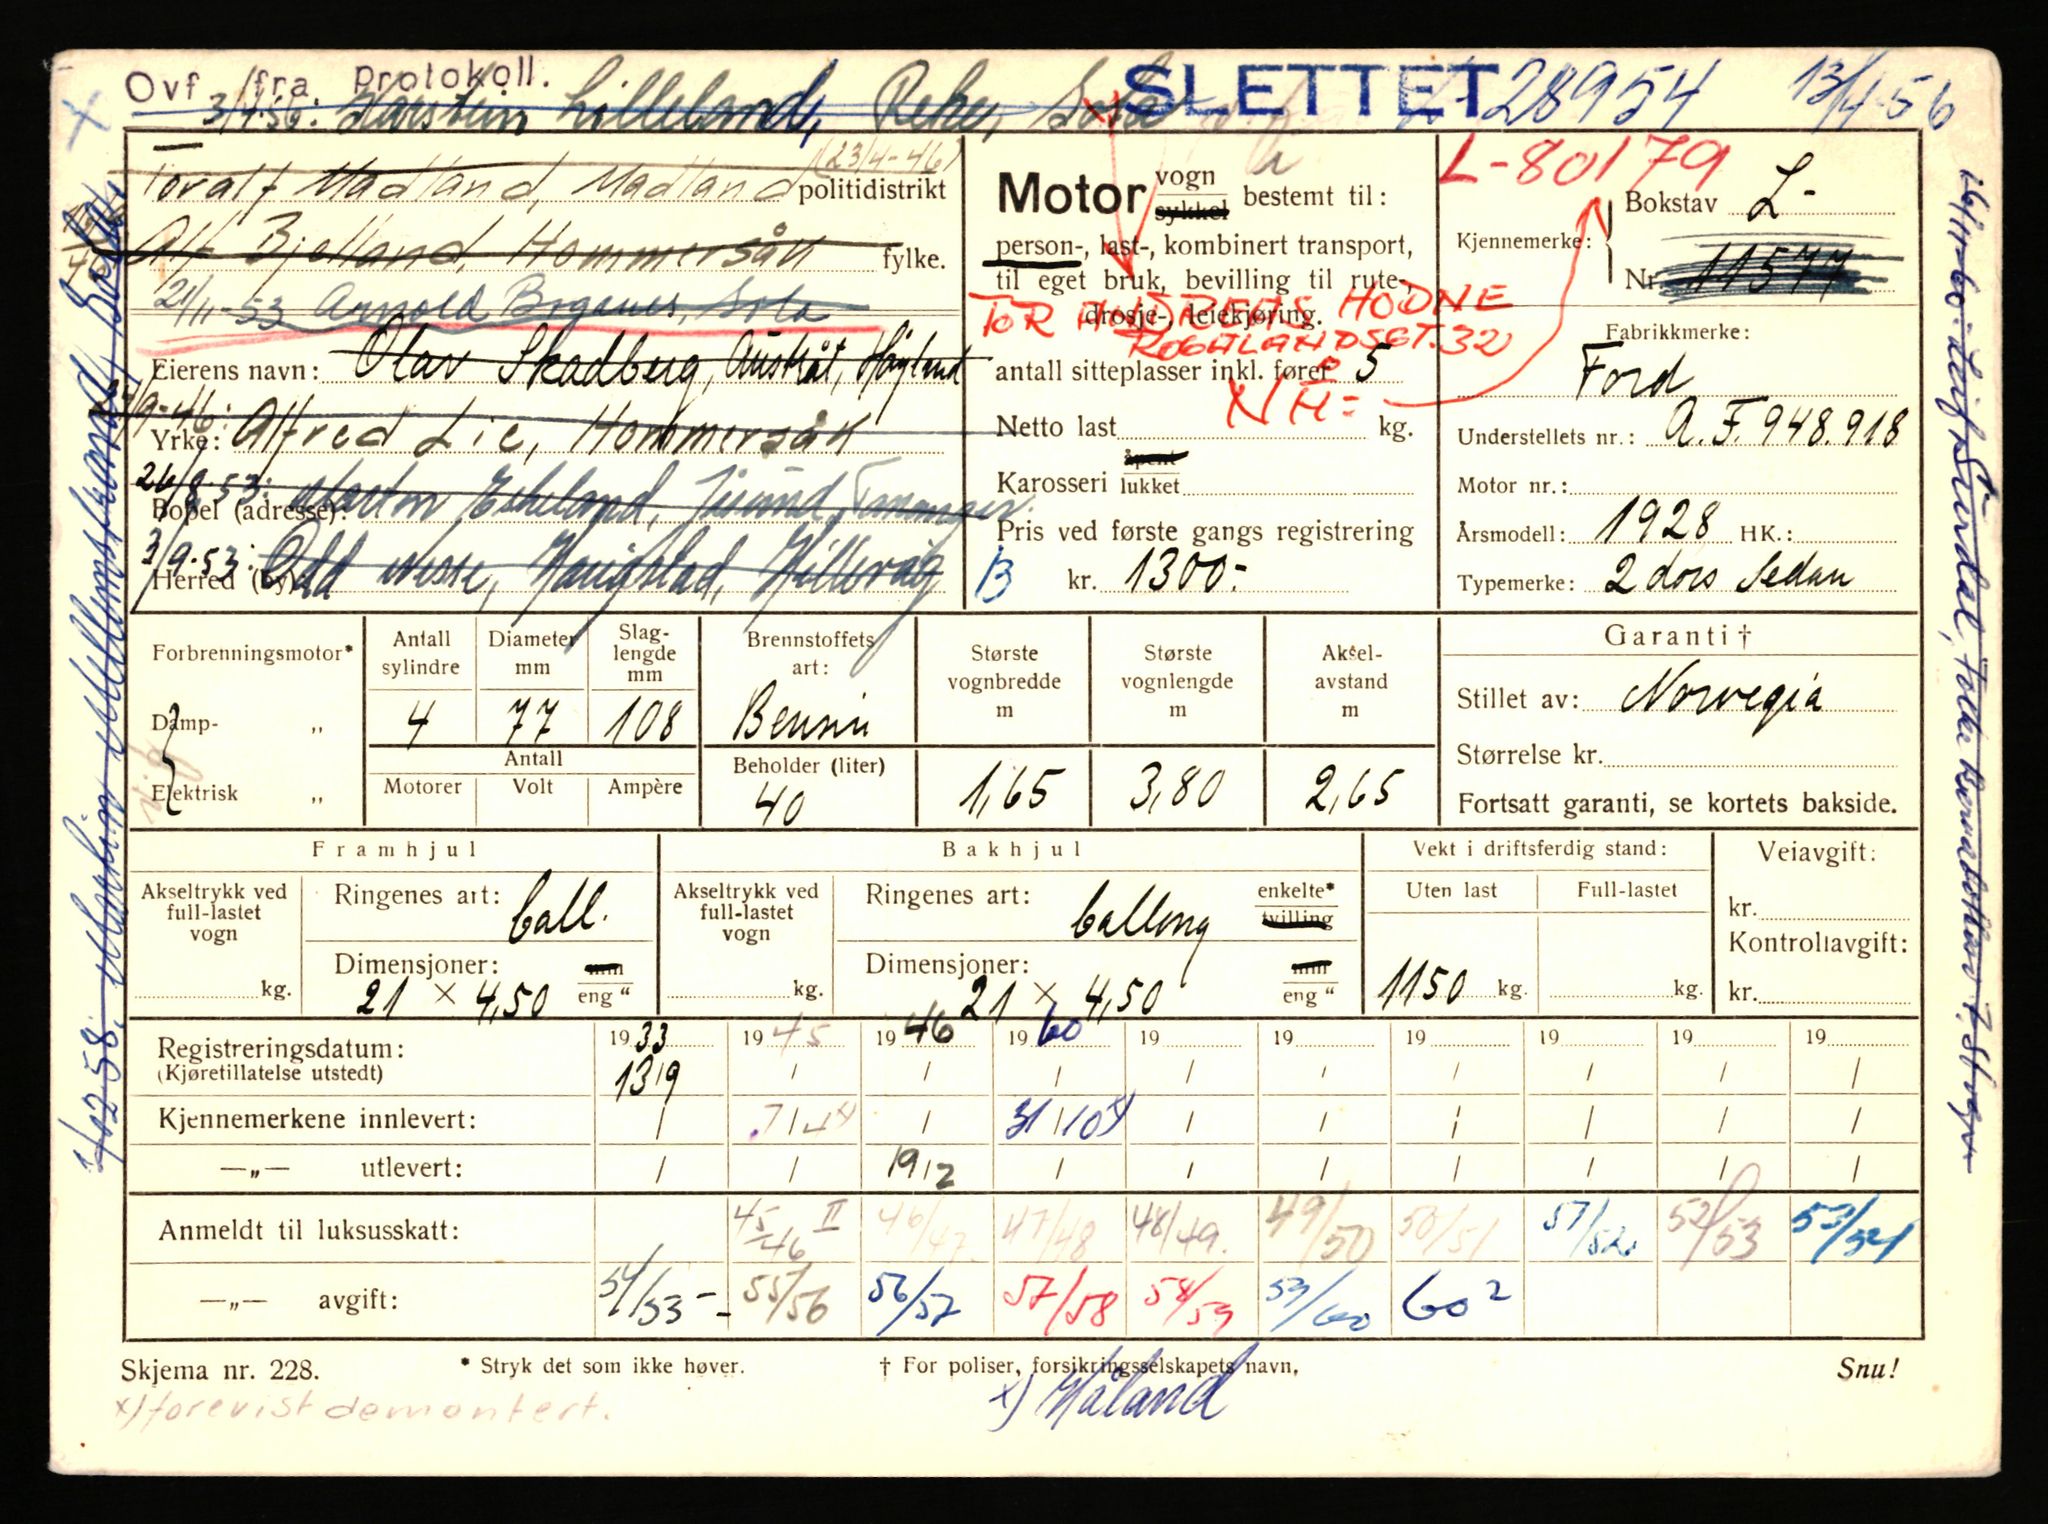 Ovf. fra protokoll. SLETTET 28954 13/4-56
3/4-56: Torstein Lilleland, Reke, Sola
L-80179
Toralf Madland, Madland (23/4-46) politidistrikt
Alf Bjelland, Hommersåk fylke.
21/11-53 Arnold Brganes, Sola
Eierens navn: Olav Skadberg, Austråt, Høyland
27/9-46:
Yrke: Alfred Lie, Hommersåk
26/8-53: Marton Eskeland, Jåsund, Tananger.
Bopel (adresse):
3/9-53: Odd Nesse, Haugstad, Hillevåg
Herred (by)
Motor vogn sykkel bestemt til:
person-, last-, kombinert transport,
til eget bruk, bevilling til rute-,
drosje-, leiekjøring.
TOR ANDREAS HODNE
ROGALANDSGT. 32
antall sitteplasser inkl. fører 5
NH=
Netto last kg.
Karosseri åpent lukket
Pris ved første gangs registrering
B kr. 1300.-
Kjennemerke: Bokstav L-
Nr. 11577
Fabrikkmerke:
Ford
Understellets nr.: A.F. 948.918
Motor nr.:
Årsmodell: 1928 HK.:
Typemerke: 2 dørs Sedan
Forbrenningsmotor*
Damp- „
Elektrisk „
Antall sylindre 4
Diameter mm 77
Slaglengde mm 108
Antall
Motorer Volt Ampère
Brennstoffets art: Bensin
Beholder (liter) 40
Største vognbredde m 1,65
Største vognlengde m 3,80
Akselavstand m 2,65
Garanti †
Stillet av: Norvegia
Størrelse kr.
Fortsatt garanti, se kortets bakside.
Framhjul
Akseltrykk ved full-lastet vogn kg.
Ringenes art: ball.
Dimensjoner: 21 × 4,50 mm eng "
Bakhjul
Akseltrykk ved full-lastet vogn kg.
Ringenes art: ballong enkelte* tvilling
Dimensjoner: 21 × 4,50 mm eng "
Vekt i driftsferdig stand:
Uten last Full-lastet
1150 kg. kg.
Veiavgift:
kr.
Kontrollavgift:
kr.
Registreringsdatum: 1933 1945 1946 1960 19 19 19 19 19 19
(Kjøretillatelse utstedt) 13/9
Kjennemerkene innlevert: 7/4 31/10
—„— utlevert: 19/2
Anmeldt til luksusskatt: 45/46 II 46/47 47/48 48/49. 49/50 50/51 51/52 52/53 53/54
—„— avgift: 54/55 55/56 56/57 57/58 58/59 59/60 60 2
Skjema nr. 228. * Stryk det som ikke høver. † For poliser, forsikringsselskapets navn, Snu!
x) forevist demontert. x) Håland